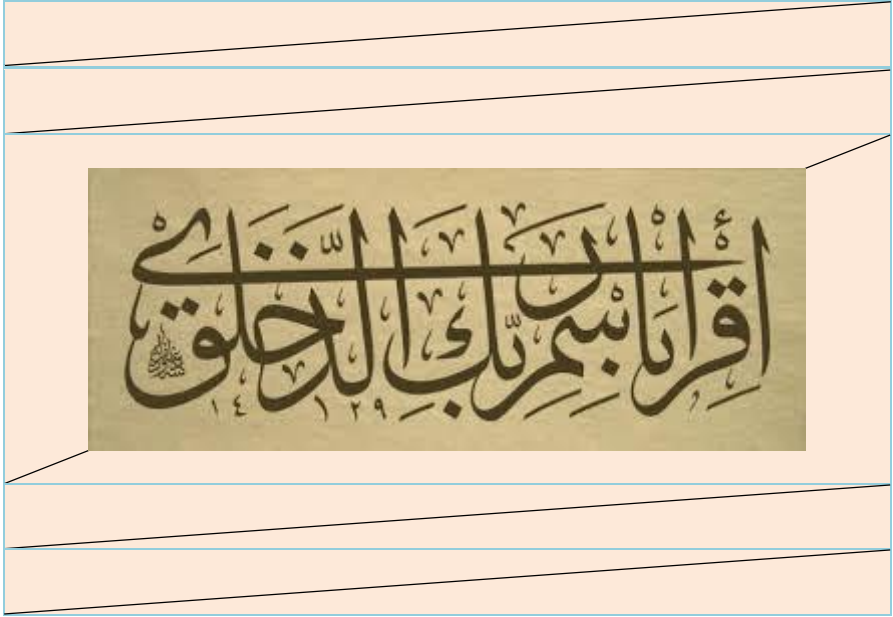 اقرأ باسم ربك الذي خلق
١٢٩ ١٤